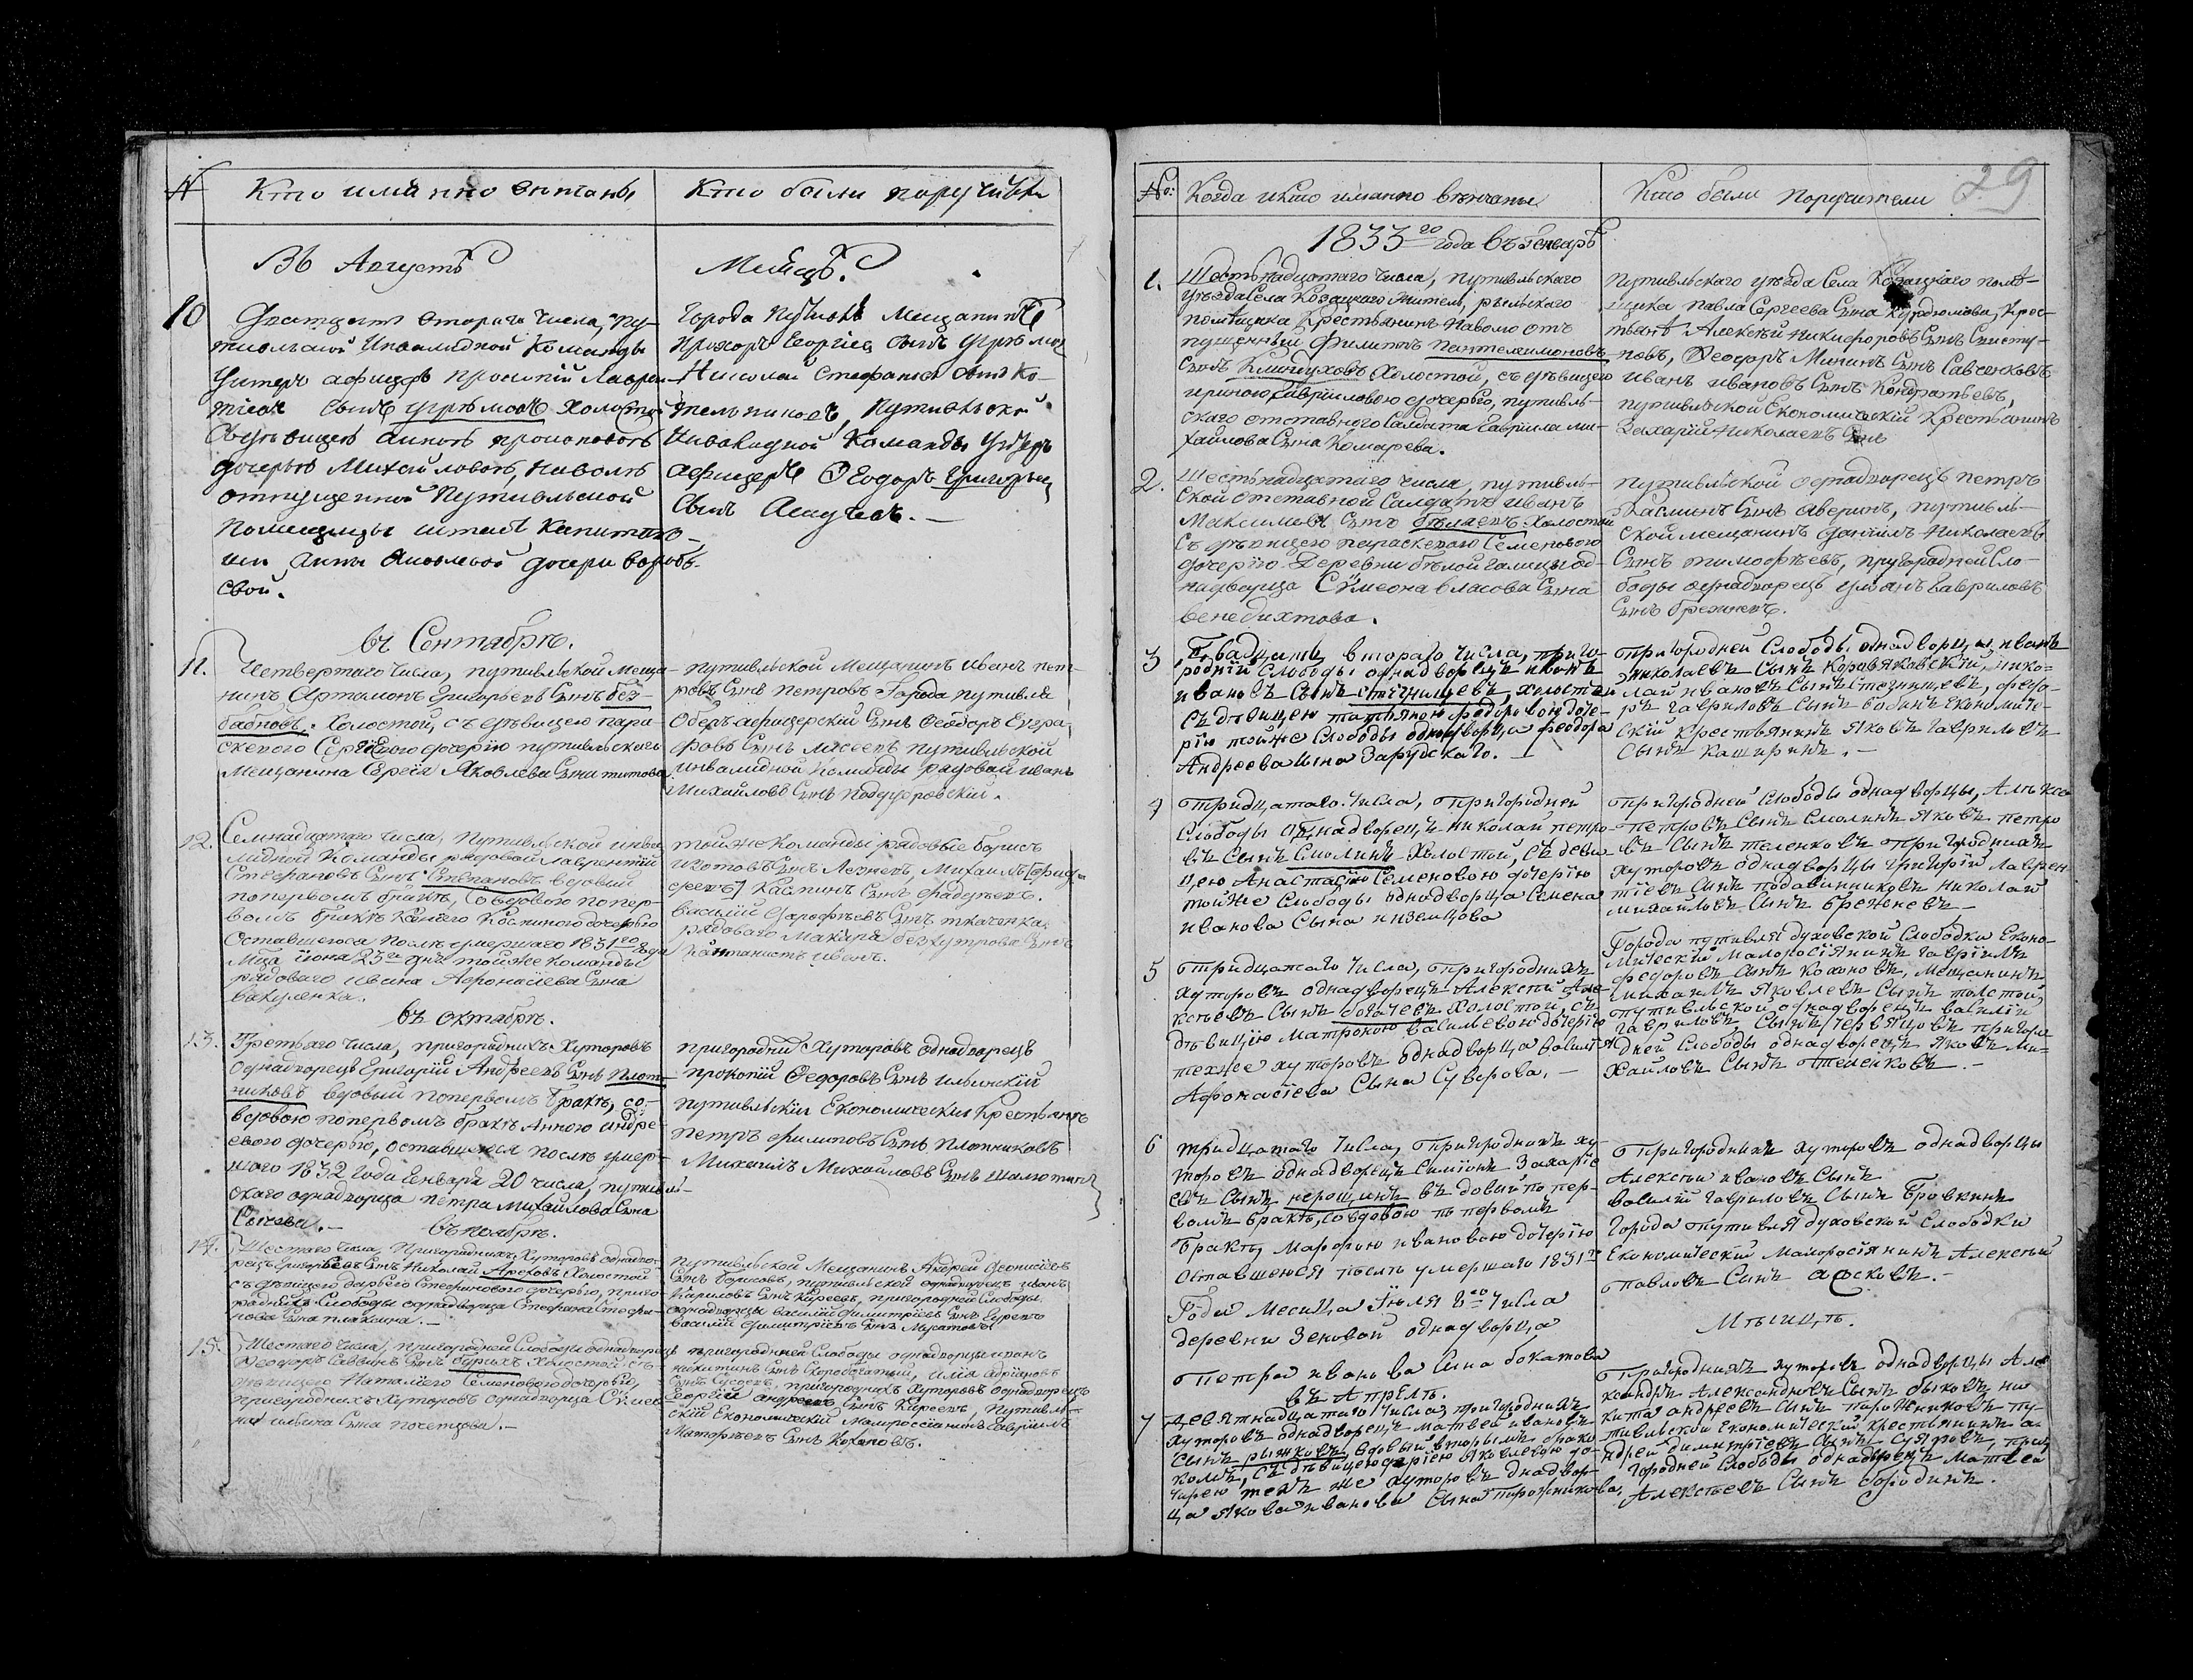 №
Кто имянно венчаны
Кто были поручители
Въ Августѣ
Мѣсяцѣ.
10
втораго числа, Пу-
тивльской Инвалидной Команды
Унтеръ афицеръ Лаврен-
тіевъ сынъ Угрѣмовъ холостой
Сдѣвицею Анною
дочерью Михайловою, наволю
отпущенной Путивльской
Помещицы штабсъ Капитанши
Анны Яковлевой дочери
Города Путивля Мещанинъ
Прохоръ Георгіевъ сынъ Угрѣмовъ
Николай Стефановъ сынъ Ко-
тельниковъ, Путивльской
Инвалидной Команды Унтеръ
афицеръ Ѳеодоръ Григорьевъ
Сынъ
въ Сентябрѣ.
11.
Четвертаго числа, путивльской меща-
нинъ Артамонъ Григорьевъ Сынъ без-
бабновъ. Холостой, съ дѣвицею пара-
скевою Сергѣевою дочерію путивльскаго
Мещанина Сергія Яковлева Сына титова
путивльской Мещанинъ Иванъ пет-
ровъ Сынъ Петровъ Города путивля
Оберъ афицерскій Сынъ Ѳеодоръ Евгра-
фовъ Сынъ путивльской
инвалидной Команды рядовой иванъ
Михайловъ Сынъ
12.
Семнадцатаго числа, Путивльской инва-
лидной Команды рядовой Лаврентій
Стефановъ Сынъ Степановъ вдовый
поперьвомъ бракѣ, Совдовою попер-
вомъ бракѣ дочерью
Оставшеюся послѣ умершаго 1831го года
Мѣца іюня 25го дня тойже команды
рядоваго ивана Афонасіева Сына
вакуленка.
тойже Команды рядовые борисъ
Сынъ Михаилъ
Сынъ
василій Сынъ ткаченка,
рядоваго Макара Сынъ
Кантанистъ иванъ.
въ октябрѣ.
13.
Третьяго числа, пригородныхъ Хуторовъ
Однадворецъ Григорій Андреевъ Сынъ Плот-
никовъ вдовый поперьвомъ бракѣ, со-
вдовою поперьвомъ бракѣ Анною андре-
евою дочерью, оставшеюся послѣ умер-
шаго 1832 года Генваря 20 числа, путивль-
скаго однадворца петра михайлова Сына
Сычева.—
пригородни Хуторовъ однадворецъ
прокопій Ѳедоровъ Сынъ ильинскій
путивльскія Економическія крестьянѣ
петръ филиповъ Сынъ плотниковъ
Михаилъ Михайловъ Сынъ
въ ноябрѣ.
14.
Шестаго числа, Пригородныхъ Хуторовъ однадво-
рецъ Григорьевъ Сынъ Николай Ареховъ холостой
съ дѣвицею дарьею Стефановою дочерью, приго-
родныхъ Слободы однадворца Стефана Стефа-
нова Сына плаксина.—
путивльской Мещанинъ Андрей Деонисіевъ
Сынъ борисовъ, путивльской однадворецъ иванъ
Кириловъ Сынъ Киреевъ, пригородней Слободы
однадворцы василій димитріевъ Сынъ
василій димитріевъ Сынъ Мусатовъ
15.
Шестаго числа, пригородней Слободы однадворецъ
Ѳеодоръ Саввинъ Сынъ бурыхъ холостой съ
дѣвицею Наталіею Семеновою дочерью,
пригородныхъ Хуторовъ однадворца Симео-
на ильина Сына почепцова.—
пригородней Слободы однадворцы иванъ
никитинъ Сынъ Скоробогатый, илія адріановъ
Сынъ Сусоевъ, пригородныхъ Хуторовъ однадворецъ
Георгій андреевъ Сынъ Киреевъ, Путивль-
скій Економическій Малороссіянинъ Гавріилъ
Сынъ Кохановъ.
№:
Когда икто имянно венчаны
Кто были Поручители
29
1833го года въ генварѣ
1.
Шестьнадцатаго числа, путивльскаго
уѣзда Села Козацкаго житель, рыльскаго
помѣщика крестьянинъ наволю от-
пущенный Филиппъ Пантелеимоновъ
Сынъ холостой, съ дѣвицею
ириною Гавриловою дочерью, путивль-
скаго отставнаго Салдата Гаврила ми-
хайлова Сына Комарева.
путивльскаго уѣзда Села Козацкаго помѣ-
щика павла Сергеева Сына Курдюмова, крес-
тьянѣ Алексѣй Никифоровъ Сынъ
Ѳеодоръ Мининъ Сынъ Савченковъ
иванъ ивановъ Сынъ Кондратьевъ,
путивльской Економическій крестьянинъ
Захарій Николаевъ Сынъ
2.
Шестьнадцатаго числа, путивль-
ской отставной Салдатъ иванъ
Максимовъ Сынъ бѣляевъ холостой
съ дѣвицею параскевою Семеновою
дочерію Деревни бѣлой галицы од-
надворца Симеона власова Сына
венедихтова.
путивльской однадворецъ петръ
Сынъ аверинъ, путивль-
ской мещанинъ даніилъ Николаевъ
Сынъ тимофѣевъ, пригородней Сло-
боды однадворецъ ульянъ Гавриловъ
Сынъ брежневъ.
3
Двадцать втораго числа, приго-
родній слободы однадворецъ иванъ
ивановъ Сынъ стегнищевъ, холостый
съ дѣвицею татьяною федоровою доче-
рію тойже Слободы однадворца феодора
Андреева Сына Зарудскаго.—
пригородней Слободы однадворцы, иванъ
николаевъ Сынъ Коровяковскій, нико-
лай ивановъ Сынъ Стегнищевъ, федо-
ръ Гавриловъ Сынъ бабинъ економиче-
скій крестьянинъ Яковъ Гавриловъ
Сынъ каширинъ.—
4
тридцатаго числа, пригородней
слободы однадворецъ николай петро-
въ Сынъ Смолинъ Холостой, съ деви-
цею Анастасіею Семеновою дочерію
тойже Слободы однадворца Семена
иванова Сына иноземцова
пригородней Слободы однадворцы, Алексе
петровъ Сынъ Смолинъ Яковъ петро
въ Сынъ теленковъ пригородныхъ
хуторовъ однадворцы григорій лаврен
тіевъ Сынъ николай
михайловъ Сынъ брежневъ—
5
тридцатаго числа, пригородныхъ
хуторовъ однадворецъ Алексѣй Але-
ксѣевъ Сынъ богачевъ холостой, съ
дѣвицію Матроною васильевою дочерію
техже хуторовъ однадворца василія
Афонасіева Сына Суверова.—
Города путивля духовской Слободки Еконо-
мическій Малоросіянинъ Гавріилъ
федоровъ Сынъ Кохановъ, мещанинъ
михаилъ Яковлевъ Сынъ толстой,
путивльской однадворецъ василій
Гавриловъ Сынъ Червяцовъ пригоро
дней Слободы однадворецъ Яковъ Ми-
хайловъ Сынъ теленковъ.—
6
тридцатаго числа, пригородныхъ ху-
торовъ однадворецъ Симіонъ Захаріе
въ Сынъ нерошинъ въдовый по пер-
вомъ бракѣ, совдовою по первомъ
бракѣ, Марфою ивановою дочерію
оставшеюся послѣ умершаго 1831го
года месица Іюля 8го числа
деревни Зеновой однадворца
петра иванова Сына бокатова
пригородныхъ хуторовъ однадворцы
Алексѣй ивановъ Сынъ
василій гавриловъ Сынъ бровкинъ
города путивля духовской Слободки
Економическій малоросіянинъ Алексѣй
павловъ Сынъ
въ Апрѣлѣ.
Мѣсицѣ.
7
девятнадцатаго числа, пригородныхъ
хуторовъ однадворецъ матвей ивановъ
Сынъ рыжковъ вдовый вторымъ брако
комъ, съ дѣвицею даріею Яковлевою до-
черею техъ же хуторовъ днадвор-
ца якова иванова Сына порожникова,
пригородныхъ хуторовъ однадворцы Але
ксандръ Александровъ Сынъ быковъ ни
кита андреевъ Сынъ порожниковъ пу-
тивльской економической крестьянинъ а-
ндрей димитріевъ Сынъ при
городней Слободы однадворецъ матвей
Алексѣевъ Сынъ бородинъ.